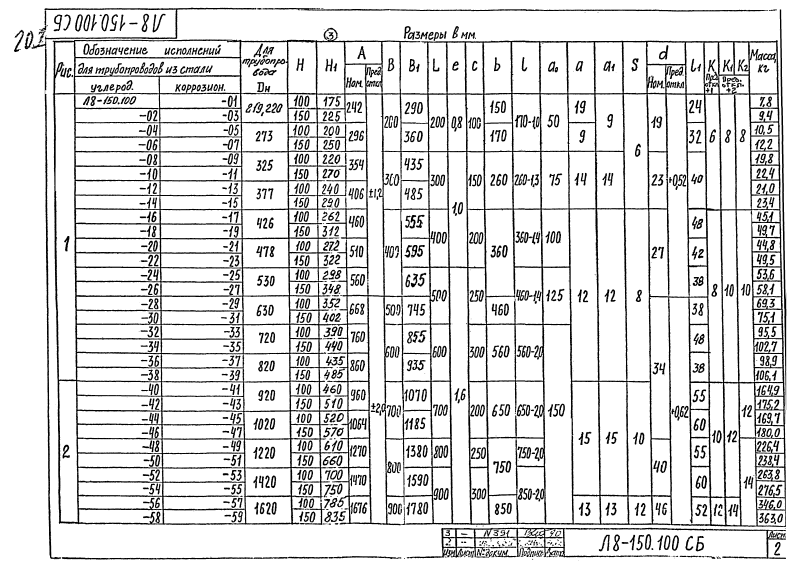 Л8-150.100 СБ
20.I
③ Размеры в мм.
Рис. Обозначение исполнений для трубопроводов из стали Для трубопровода Dн H H1 A B B1 L e c b l a0 a a1 S d l1 K K1 K2 Масса, кг
углерод. коррозион. Ном. Пред. откл. Ном. Пред. откл. Пред. откл. ±1 Пред. откл. ±2
1 Л8-150.100 -01 219,220 100 175 242 ±1,2 200 290 200 0,8 100 150 170-1,0 50 19 9 6 19 ±0,52 24 6 8 8 7,8
-02 -03 150 225 9,4
-04 -05 273 100 200 296 360 170 9 32 10,5
-06 -07 150 250 12,2
-08 -09 325 100 220 354 300 435 300 1,0 150 260 260-1,3 75 14 14 23 40 19,8
-10 -11 150 270 22,4
-12 -13 377 100 240 406 485 21,0
-14 -15 150 290 23,4
-16 -17 426 100 262 460 400 555 400 200 360 360-1,4 100 12 12 8 27 48 8 10 10 45,1
-18 -19 150 312 49,7
-20 -21 478 100 272 510 595 42 44,8
-22 -23 150 322 49,5
-24 -25 530 100 298 560 635 500 250 460-1,4 125 38 53,6
-26 -27 150 348 58,1
-28 -29 630 100 352 668 ±2,0 500 745 460 34 ±0,62 38 69,3
-30 -31 150 402 75,1
-32 -33 720 100 390 760 600 855 600 1,6 300 560 560-2,0 150 48 95,5
-34 -35 150 440 102,7
-36 -37 820 100 435 860 935 38 98,9
-38 -39 150 485 106,1
2 -40 -41 920 100 460 960 700 1070 700 200 650 650-2,0 15 15 10 55 10 12 12 164,9
-42 -43 150 510 175,2
-44 -45 1020 100 520 1064 1185 60 169,7
-46 -47 150 570 180,0
-48 -49 1220 100 610 1270 800 1380 800 250 750 750-2,0 40 55 14 226,4
-50 -51 150 660 238,4
-52 -53 1420 100 700 1470 1590 900 300 850-2,0 60 263,8
-54 -55 150 750 276,5
-56 -57 1620 100 785 1676 900 1780 850 13 13 12 46 52 12 14 346,0
-58 -59 150 835 363,0
3 - N391
2
Изм Лист №докум. Подпись Дата
Л8-150.100 СБ
Лист
2